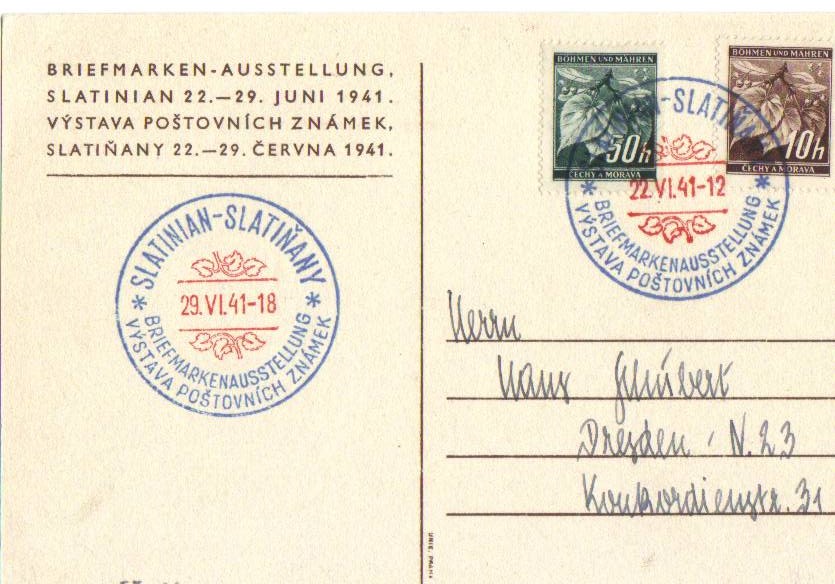 BRIEFMARKEN-AUSSTELLUNG,
SLATINIAN 22.—29. JUNI 1941.
VÝSTAVA POŠTOVNÍCH ZNÁMEK,
SLATIŇANY 22.—29. ČERVNA 1941.
SLATINIAN-SLATIŇANY
29.VI.41-18
* BRIEFMARKENAUSSTELLUNG *
VÝSTAVA POŠTOVNÍCH ZNÁMEK
BÖHMEN UND MÄHREN
50h
ČECHY A MORAVA
BÖHMEN UND MÄHREN
10h
ČECHY A MORAVA
SLATINIAN-SLATIŇANY
22.VI.41-12
* BRIEFMARKENAUSSTELLUNG *
VÝSTAVA POŠTOVNÍCH ZNÁMEK
Herrn
Hans Schubert
Dresden - N.23
Konkordienstr. 31
UNIE, PRAHA